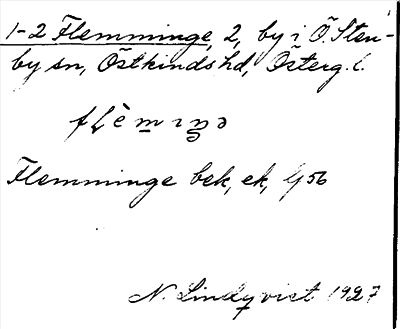 1-2 Flemminge, 2, by i Ö. Sten-
by sn, Östkinds hd, Österg. l.
Flemminge bek, ek, 4/56
N. Lindqvist 1927